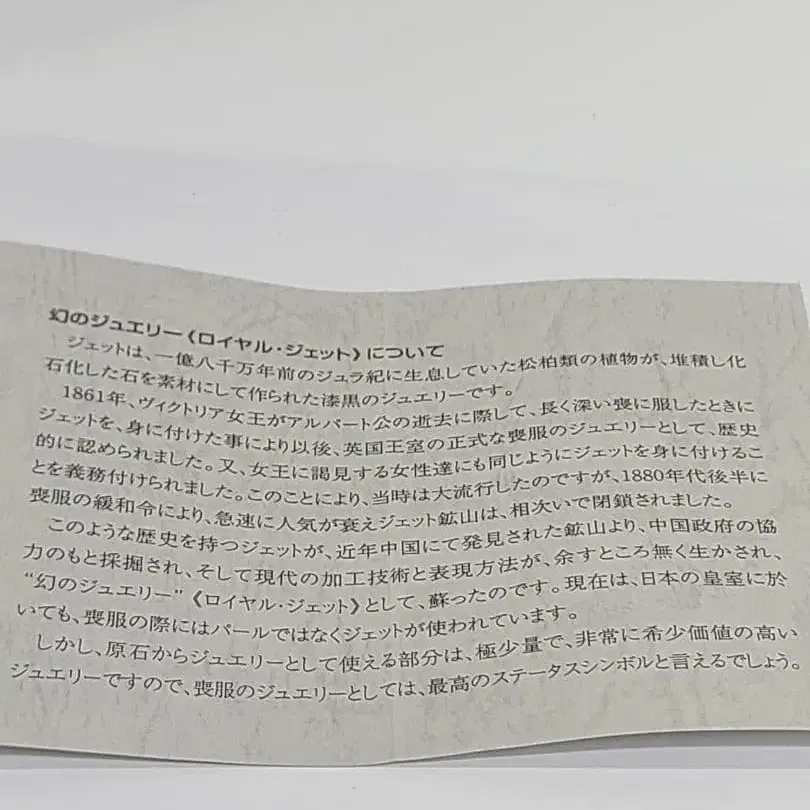 幻のジュエリー《ロイヤル・ジェット》について
ジェットは、一億八千万年前のジュラ紀に生息していた松柏類の植物が、堆積し化
石化した石を素材にして作られた漆黒のジュエリーです。
1861年、ヴィクトリア女王がアルバート公の逝去に際して、長く深い喪に服したときに
ジェットを、身に付けた事により以後、英国王室の正式な喪服のジュエリーとして、歴史
的に認められました。又、女王に謁見する女性達にも同じようにジェットを身に付けるこ
とを義務付けられました。このことにより、当時は大流行したのですが、1880年代後半に
喪服の緩和令により、急速に人気が衰えジェット鉱山は、相次いで閉鎖されました。
このような歴史を持つジェットが、近年中国にて発見された鉱山より、中国政府の協
力のもと採掘され、そして現代の加工技術と表現方法が、余すところ無く生かされ、
“幻のジュエリー”《ロイヤル・ジェット》として、蘇ったのです。現在は、日本の皇室に於
いても、喪服の際にはパールではなくジェットが使われています。
しかし、原石からジュエリーとして使える部分は、極少量で、非常に希少価値の高い
ジュエリーですので、喪服のジュエリーとしては、最高のステータスシンボルと言えるでしょう。